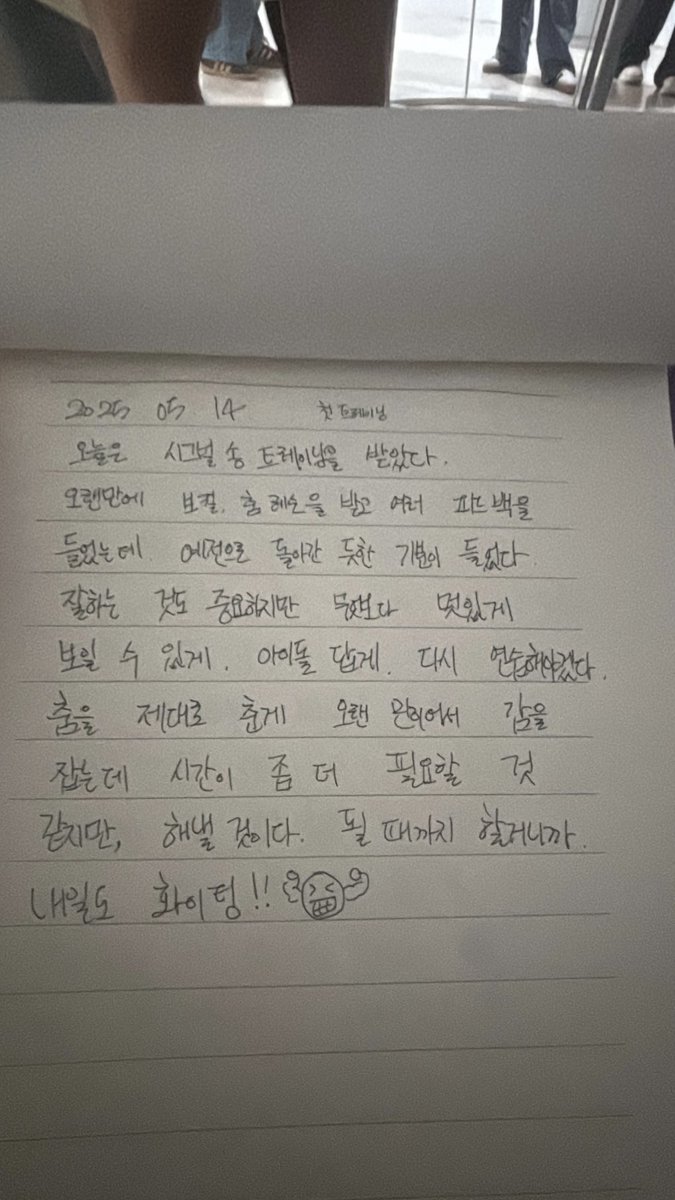 2025 05 14 첫 트레이닝
오늘은 시그널 송 트레이닝을 받았다.
오랜만에 보컬, 춤 레슨을 받고 여러 피드백을
들었는데 예전으로 돌아간 듯한 기분이 들었다.
잘하는 것도 중요하지만 무엇보다 멋있게
보일 수 있게. 아이돌 답게. 다시 연습해야겠다.
춤을 제대로 춘게 오랜 만이어서 감을
잡는데 시간이 좀 더 필요할 것
같지만, 해낼 것이다. 될 때까지 할거니까.
내일도 화이팅!!